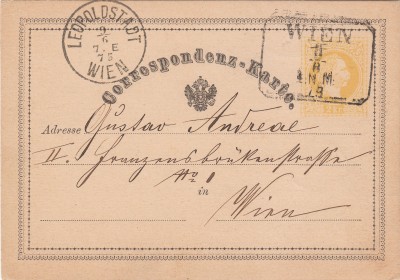 LEOPOLDSTADT
9
6
7. E
75
WIEN
WIEN
Correspondenz-Karte.
Adresse Gustav Andreae
II. Franzensbrükenstrasse
No 1
in
Wien